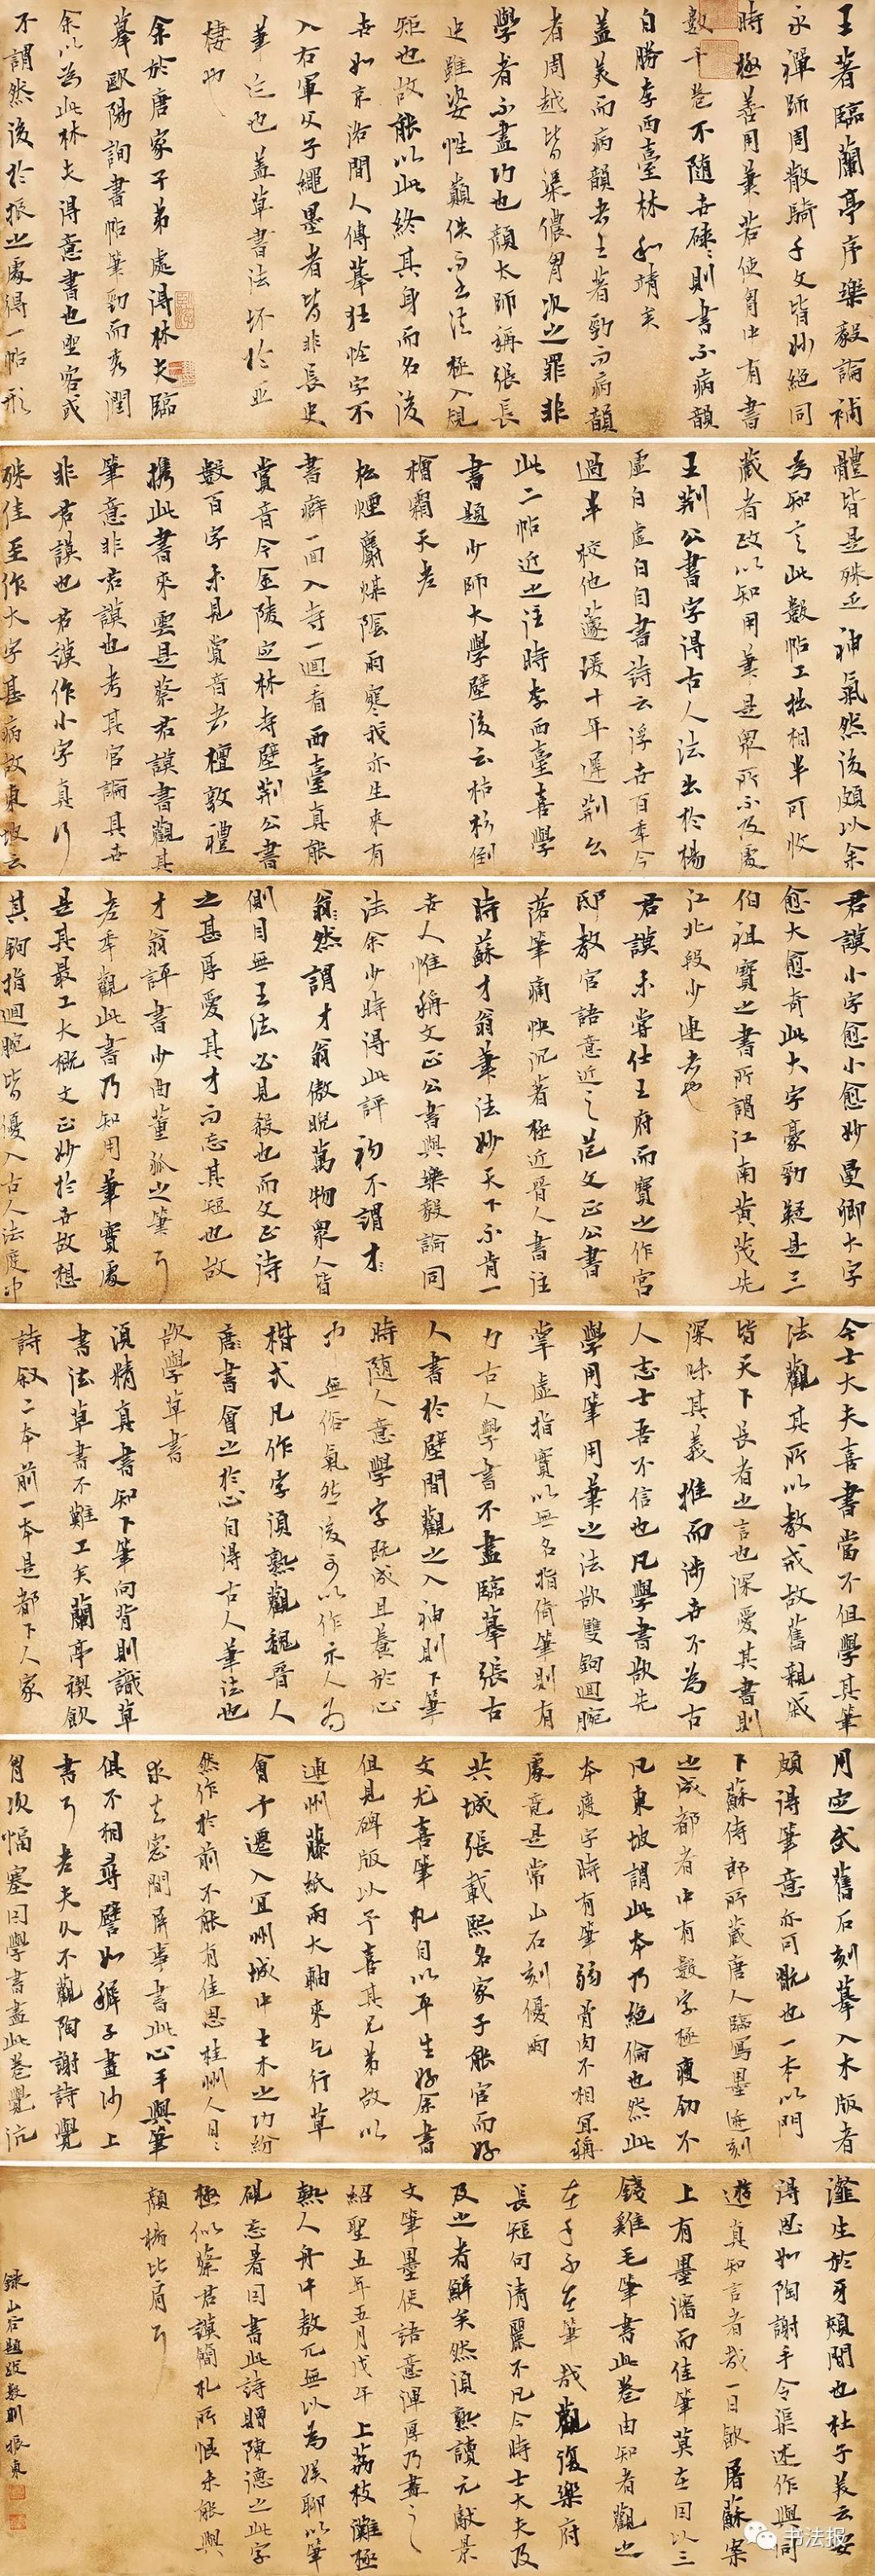 王著臨蘭亭序樂毅論補
永禪師周散騎千文皆妙絕同
時極善用筆若使胷中有書
數千卷不隨世碌碌則書不病韻
自勝李西臺林和靖矣
蓋美而病韻者王著勁而病韻
者周越皆渠儂胷次之罪非
學者不盡功也顏太師稱張長
史雖姿性顛佚而書法極入規
矩也故能以此終其身而名後
世如京洛間人傳摹狂恠字不
入右軍父子繩墨者皆非長史
筆迹也蓋草書法壞於亞
棲也
余於唐家子弟處得林夫臨
摹歐陽詢書帖筆勁而秀潤
余以為此林夫得意書也聖客或
不謂然後於振之處得一帖形
體皆是殊乏神氣然後頗以余
為知言此數帖工拙相半可收
藏者政以知用筆是眾所不及處
王荊公書字得古人法出於楊
虛白虛白自書詩云浮世百年今
過半校他蘧瑗十年遲荊公
此二帖近之往時李西臺喜學
書題少師大學壁後云枯杉倒
檜霜天老
松煙麝煤隂雨寒我亦生來有
書癖一回入寺一迴看西臺真能
賞音今金陵定林寺壁荊公書
數百字未見賞音者檀敦禮
攜此書來雲是蔡君謨書觀其
筆意非君謨也考其官論其世
非君謨也君謨作小字真行
殊佳至作大字甚病故東坡云
君謨小字愈小愈妙曼卿大字
愈大愈奇此大字豪勁疑是三
伯祖寶之書所謂江南黃茂先
江北段少連者也
君謨未嘗仕王府而寶之作宮
邸教官語意近之范文正公書
落筆痛快沉著極近晉人書往
時蘇才翁筆法妙天下不肯一
世人惟稱文正公書與樂毅論同
法余少時得此評初不謂才
翁然謂才翁傲睨萬物眾人皆
側目無王法必見殺也而文正待
之甚厚愛其才而忘其短也故
才翁評書少曲董狐之筆耳
老年觀此書乃知用筆實處
是其最工大概文正妙於世故想
其鉤指迴腕皆優入古人法度中
今士大夫喜書當不但學其筆
法觀其所以教戒故舊親戚
皆天下長者之言也深愛其書則
深味其義推而涉世不為古
人志士吾不信也凡學書欲先
學用筆用筆之法欲雙鉤迴腕
掌虛指實以無名指倚筆則有
力古人學書不盡臨摹張古
人書於壁間觀之入神則下筆
時隨人意學字既成且養於心
中無俗氣然後可以作示人為
楷式凡作字須熟觀魏晉人
書會之於心自得古人筆法也
欲學草書
須精真書知下筆向背則識草
書法草書不難工矣蘭亭禊飲
詩敘二本前一本是都下人家
用定武舊石刻摹入木版者
頗得筆意亦可翫也一本以門
下蘇侍郎所藏唐人臨寫墨迹刻
之成都者中有數字極瘦勁不
凡東坡謂此本乃絕倫也然此
本瘦字時有筆弱骨肉不相宜稱
處竟是常山石刻優爾
共城張載熙名家子能官而好
文尤喜筆札自以平生好余書
但見碑版以予喜其兄弟故以
連州藤紙兩大軸來乞行草
會予遷入宜州城中土木之功紛
然作於前不能有佳思桂州人日日
求去窓間屏事書此心手與筆
俱不相尋譬如稺子畫沙上
書耳老夫久不觀陶謝詩覺
胷次愊塞因學書盡此卷覺沆
瀣生於牙頰間也杜子美云安
得思如陶謝手令渠述作與同
遊真知言者哉一日飲屠蘇案
上有墨瀋而佳筆莫在因以三
錢雞毛筆書此卷由知者觀之
在手不在筆哉觀復樂府
長短句清麗不凡今時士大夫及
及之者鮮矣然須熟讀元獻景
文筆墨使語意渾厚乃盡之
紹聖五年五月戊午上荔枝灘極
熱人舟中敖兀無以為娛聊以筆
硯忘暑因書此詩贈陳德之此字
極似蔡君謨簡札所恨未能與
顏楊比肩耳
錄山谷題跋數則 振東
书法报